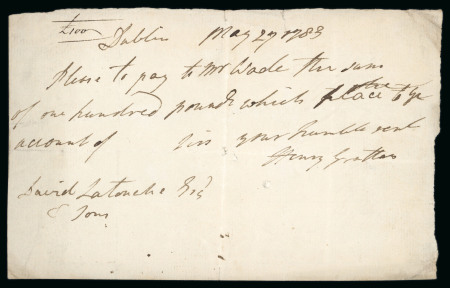 £100
Dublin May 27 1783
Please to pay to Mr Wade the sum
of one hundred pounds which place to ye
account of Sir your humble servt
Henry Grattan
David Latouche Esqr
& Sons